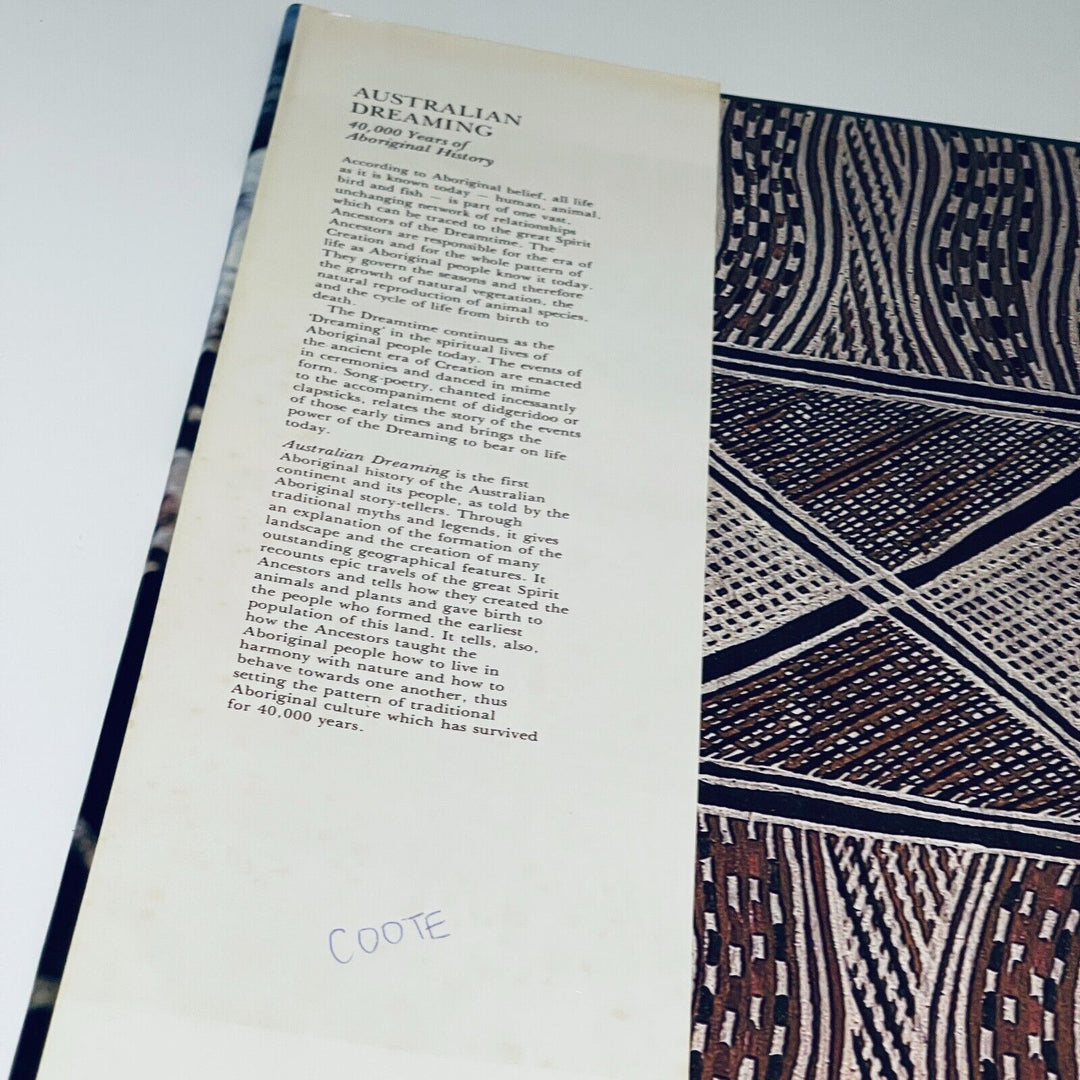 AUSTRALIAN
DREAMING
40,000 Years of
Aboriginal History
According to Aboriginal belief, all life
as it is known today — human, animal,
bird and fish — is part of one vast,
unchanging network of relationships
which can be traced to the great Spirit
Ancestors of the Dreamtime. The
Ancestors are responsible for the era of
Creation and for the whole pattern of
life as Aboriginal people know it today.
They govern the seasons and therefore
the growth of natural vegetation, the
natural reproduction of animal species,
and the cycle of life from birth to
death.
The Dreamtime continues as the
'Dreaming' in the spiritual lives of
Aboriginal people today. The events of
the ancient era of Creation are enacted
in ceremonies and danced in mime
form. Song-poetry, chanted incessantly
to the accompaniment of didgeridoo or
clapsticks, relates the story of the events
of those early times and brings the
power of the Dreaming to bear on life
today.
Australian Dreaming is the first
Aboriginal history of the Australian
continent and its people, as told by the
Aboriginal story-tellers. Through
traditional myths and legends, it gives
an explanation of the formation of the
landscape and the creation of many
outstanding geographical features. It
recounts epic travels of the great Spirit
Ancestors and tells how they created the
animals and plants and gave birth to
the people who formed the earliest
population of this land. It tells, also,
how the Ancestors taught the
Aboriginal people how to live in
harmony with nature and how to
behave towards one another, thus
setting the pattern of traditional
Aboriginal culture which has survived
for 40,000 years.
COOTE